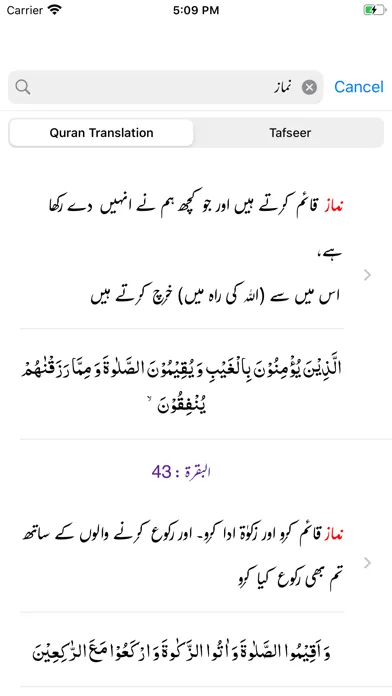 Carrier
5:09 PM
نماز
Cancel
Quran Translation
Tafseer
نماز قائم کرتے ہیں اور جو کچھ ہم نے انہیں دے رکھا
ہے،
اس میں سے (اللہ کی راہ میں) خرچ کرتے ہیں
الَّذِيْنَ يُؤْمِنُوْنَ بِالْغَيْبِ وَيُقِيْمُوْنَ الصَّلٰوةَ وَمِمَّا رَزَقْنٰھُمْ
يُنْفِقُوْنَ ۙ
البقرة : 43
نماز قائم کرو اور زکوٰۃ ادا کرو۔ اور رکوع کرنے والوں کے ساتھ
تم بھی رکوع کیا کرو
وَاَقِيْمُوا الصَّلٰوةَ وَاٰتُوا الزَّكٰوةَ وَارْكَعُوْا مَعَ الرّٰكِعِيْنَ